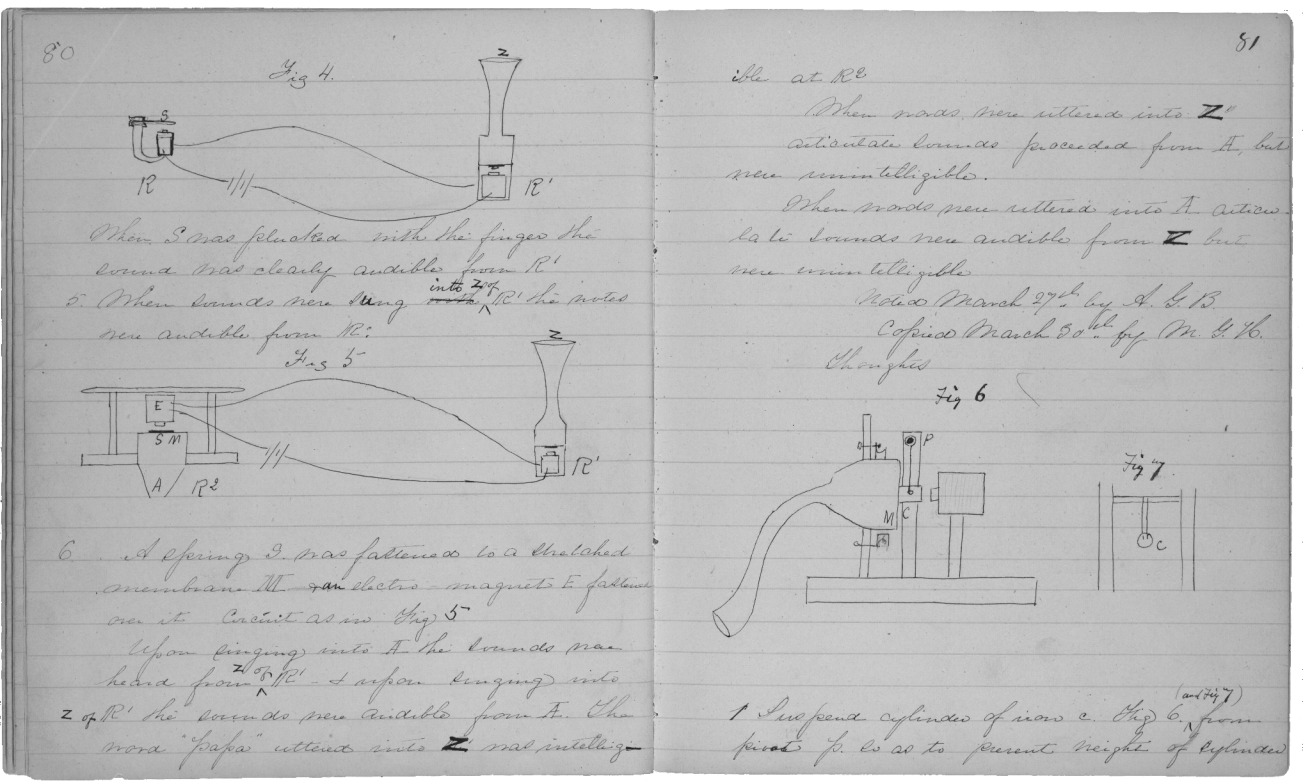 80
Fig 4.
Z
S
R
R'
When S was plucked with the finger the
sound was clearly audible from R'
5. When sounds were sung into Z of R' the notes
were audible from R.
Fig 5
Z
E
S M
A
R2
R'
6. A spring S. was fastened to a stretched
membrane M an electro-magnet E fastened
over it Circuit as in Fig 5
Upon singing into A the sounds were
heard from Z of R' - & upon singing into
Z of R' the sounds were audible from A. The
word "papa" uttered into Z was intelligi-
81
ible at R2
When words were uttered into Z"
articulate sounds proceeded from A, but
were unintelligible.
When words were uttered into A articu-
late sounds were audible from Z but
were unintelligible
Noted March 27th by A. G. B.
Copied March 30th by M. G. H.
Thoughts
Fig 6
P
M
C
Fig 7
C
1 Suspend cylinder of iron c. Fig 6. (and Fig 7) from
pivot p. so as to prevent weight of cylinder